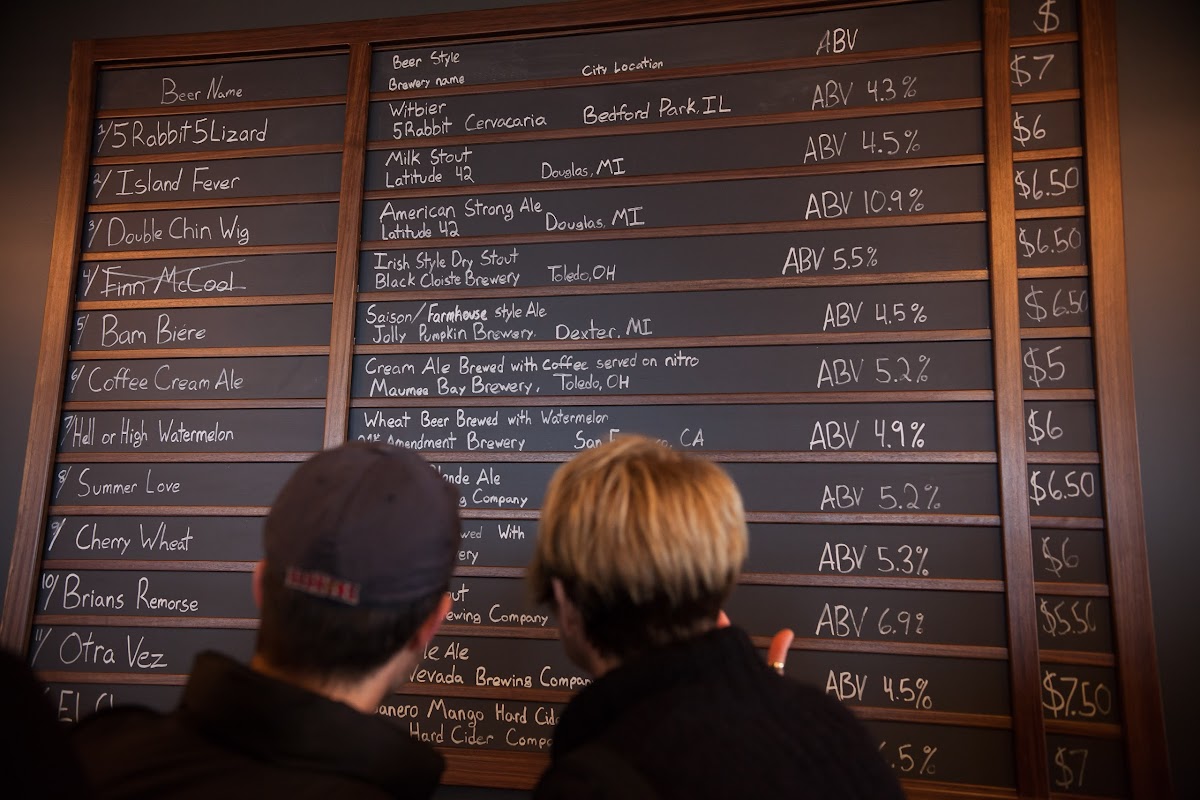 Beer Name
Beer Style
Brewery name City Location
ABV
$
1/ 5 Rabbit 5 Lizard
Witbier
5 Rabbit Cervacaria Bedford Park, IL
ABV 4.3%
$7
2/ Island Fever
Milk Stout
Latitude 42 Douglas, MI
ABV 4.5%
$6
3/ Double Chin Wig
American Strong Ale
Latitude 42 Douglas, MI
ABV 10.9%
$6.50
4/ Finn McCool
Irish Style Dry Stout
Black Cloiste Brewery Toledo, OH
ABV 5.5%
$6.50
5/ Bam Biere
Saison/Farmhouse style Ale
Jolly Pumpkin Brewery. Dexter, MI
ABV 4.5%
$6.50
6/ Coffee Cream Ale
Cream Ale Brewed with coffee served on nitro
Maumee Bay Brewery, Toledo, OH
ABV 5.2%
$5
7/ Hell or High Watermelon
Wheat Beer Brewed with Watermelon
Amendment Brewery San CA
ABV 4.9%
$6
8/ Summer Love
Ale
Company
ABV 5.2%
$6.50
9/ Cherry Wheat
With
ABV 5.3%
$6
10/ Brians Remorse
Company
ABV 6.9%
$5.50
11/ Otra Vez
Ale
Nevada Brewing Company
ABV 4.5%
$7.50
Mango Hard
Hard Cider
.5%
$7